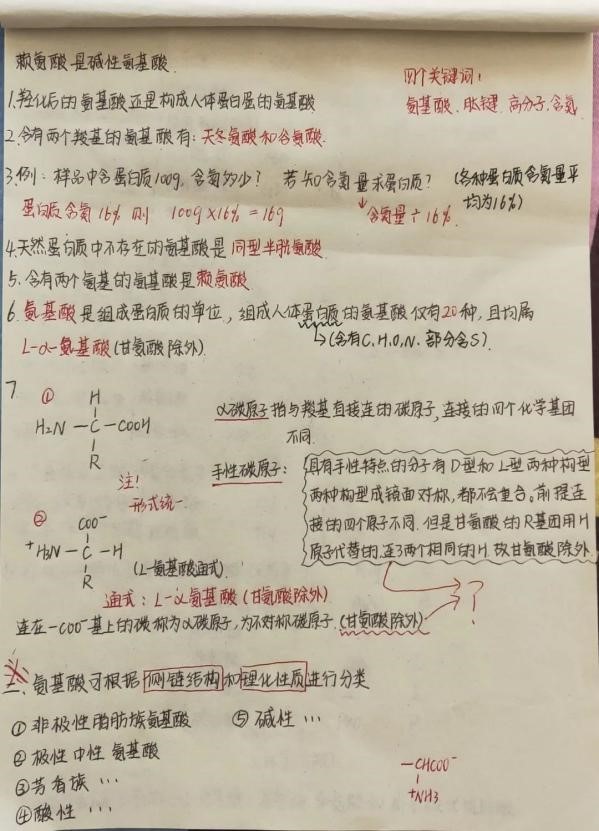 赖氨酸是碱性氨基酸.
四个关键词:
氨基酸、肽键、高分子、含氮
1.羟化后的氨基酸还是构成人体蛋白蛋的氨基酸
2.含有两个羧基的氨基酸有:天冬氨酸和谷氨酸.
3.例:样品中含蛋白质100g,含氮多少? 若知含氮量求蛋白质? (各种蛋白质含氮量平
均为16%)
蛋白质含氮16% 则 100g×16%=16g
↓含氮量÷16%.
4.天然蛋白质中不存在的氨基酸是同型半胱氨酸
5.含有两个氨基的氨基酸是赖氨酸
6.氨基酸是组成蛋白质的单位,组成人体蛋白质的氨基酸仅有20种,且均属
L-α-氨基酸(甘氨酸除外).
↳(含有C.H.O.N.部分含S).
7.
①
H
H₂N-C-COOH
R
α碳原子指与羧基直接连的碳原子,连接的四个化学基团
不同.
注!
形式统一
手性碳原子:
具有手性特点的分子有D型和L型两种构型
两种构型成镜面对称,都不会重合。前提连
接的四个原子不同.但是甘氨酸的R基团用H
原子代替的,连了两个相同的H.故甘氨酸除外.
②
COO⁻
⁺H₃N-C-H
R
(L-氨基酸通式).
通式:L-α氨基酸(甘氨酸除外).
?
连在-COO⁻基上的碳称为α碳原子,为不对称碳原子.(甘氨酸除外)
二、氨基酸可根据侧链结构和理化性质进行分类
①非极性脂肪族氨基酸 ⑤碱性…
②极性中性氨基酸
③芳香族…
④酸性…
-CHCOO⁻
⁺NH3